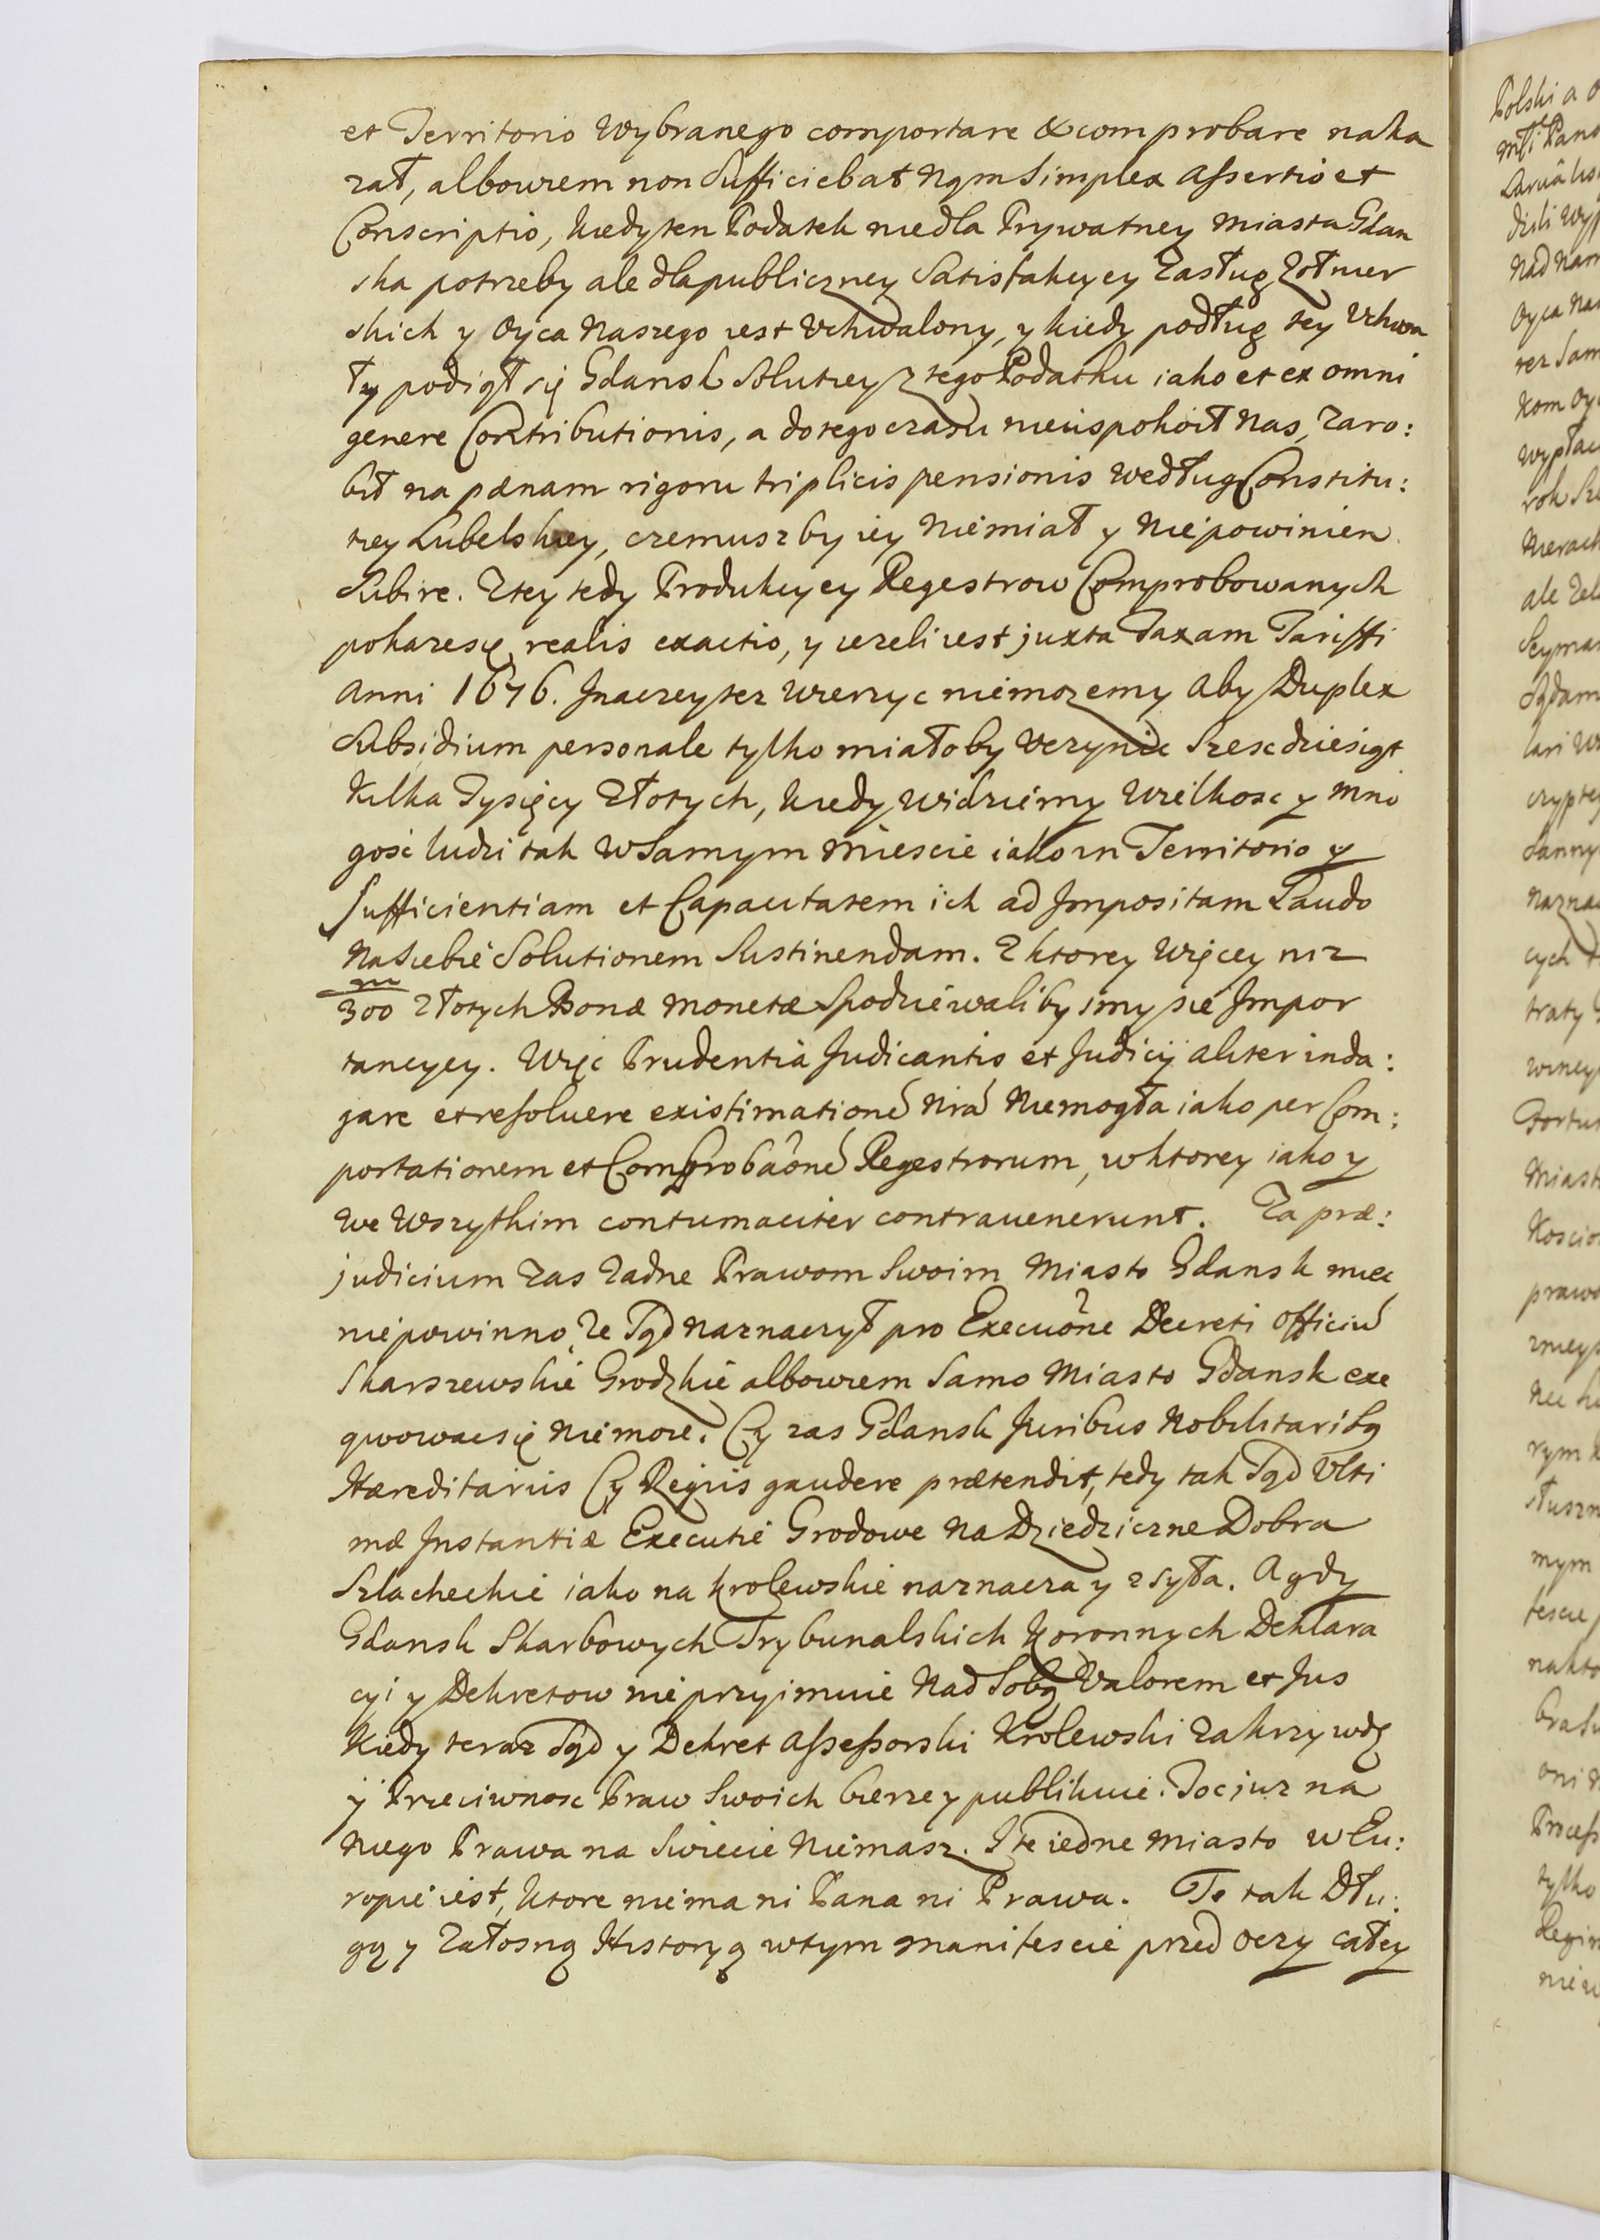 et Territorio Wybranego comportare & comprobare naka
zał, albowiem non Sufficiebat Ngm Simplex Assertio et
Conscriptio, kiedy ten Podatek nie dla Prywatney Miasta Gdan
ska potrzeby ale dla publiczney Satisfakcyey Zasług Zołnier
skich y Oyca Naszego iest Vchwalony, y kiedy podług tey Vchwa
ły podiął się Gdansk Solutiey z tego Podatku iako et ex omni
genere Contributionis, a do tego czasu nieuspokoił Nas, Zaro:
bił na pænam rigoru triplicis pensionis według Constitu:
tiey Lubelskiey, czemusz by iey Niemiał y Niepowinien
Subire. Z tey tedy Produkcyey Regestrow Comprobowanych
pokaze się realis exactio, y iezeli iest juxta Taxam Tariffi
Anni 1676. Inaczey tez wierzyc niemozemy Aby Duplex
Subsidium personale tylko miałoby Vczynic Szescdziesiąt
Kilka Tysięcy Złotych, kiedy widziemy Wielkosc y Mno
gosc ludzi tak w Samym Miescie iako in Territorio y
Sufficientiam et Capacitatem ich ad Impositam Laudo
Na Siebie Solutionem Sustinendam. Z ktorey Więcey niz
m
300 Złotych Bonæ Monetæ Spodziewalibysmy sie Impor
tancyey. Więc Prudentia Judicantis et Judicij aliter inda:
gare et resoluere existimatione Nira Niemogła iako per Com:
portationem et Comprobaone Regestrorum, w ktorey iako y
We Wszytkim contumaciter contrauenerunt. Za præ:
judicium Zas Zadne Prawom Swoim Miasto Gdansk miec
niepowinno, Ze Sąd naznaczył pro Execuone Decreti Officiu
Skarszewskie Grodzkie albowiem Samo Miasto Gdansk exe
qwowac się Niemoze. Czy zas Gdansk Juribus Nobilitaribq
Hæreditariis Czy Regiis gaudere prætendit, tedy tak Sąd Vlti
mæ Instantiæ Executie Grodowe Na Dziedziczne Dobra
Szlacheckie iako na krolewskie naznacza y zsyła. A gdy
Gdansk Skarbowych Trybunalskich Koronnych Deklara
cyi y Dekretow nie przyimuie Nad Sobą Valorem et Jus
Kiedy teraz Sąd y Dekret Assessorski Krolewski Za krzywdę
y Przeciwnosc Praw Swoich bierze y publikuie. Toc juz na
Niego Prawa na Swiecie Niemasz. I te iedne Miasto w Eu:
ropie iest, ktore niema ni Pana ni Prawa. Te tak Dłu:
gą y Załosną Historyą w tym Manifescie przed Oczy całey